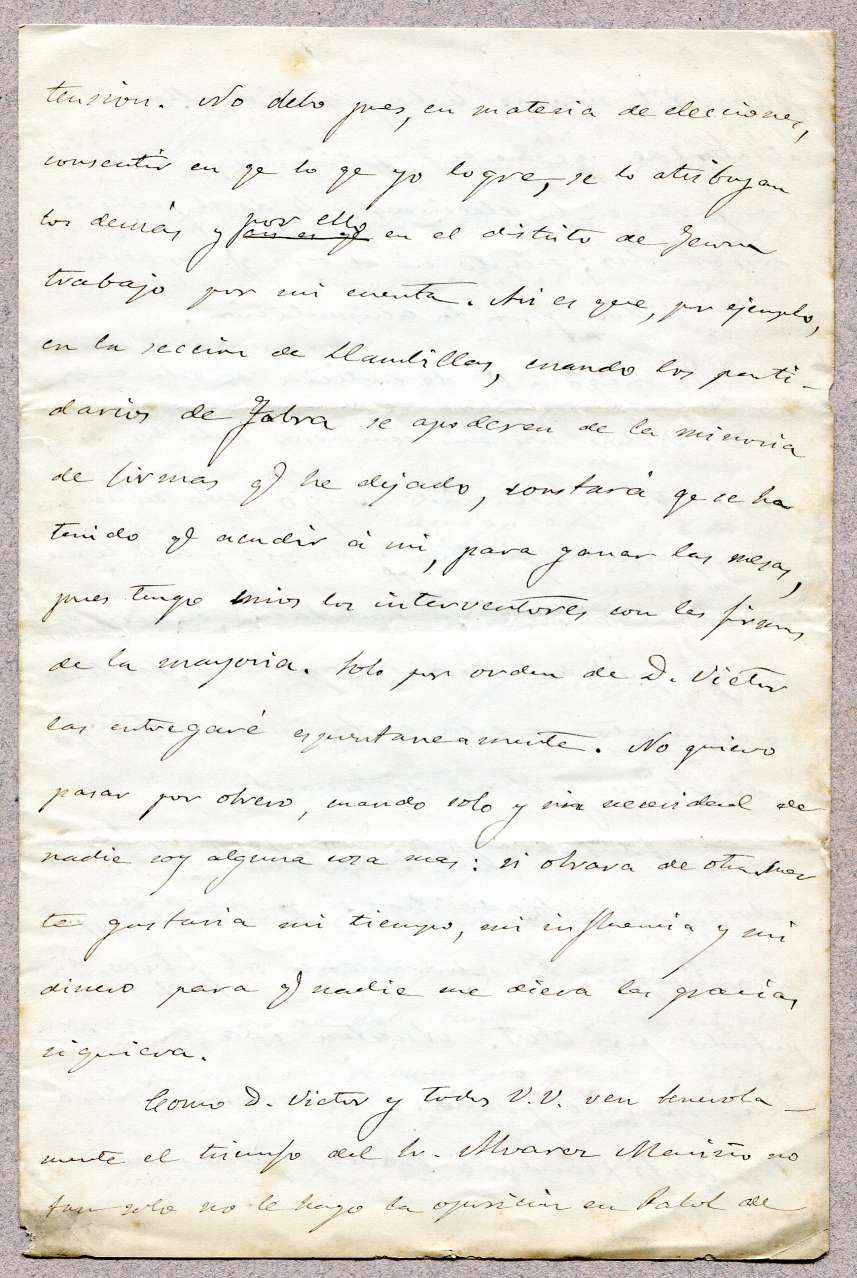 tension. No debo pues, en materia de elecciones,
consentir en qe lo qe yo logre, se lo atribuyan
los demás y por ello en el distrito de Gerona
trabajo por mi cuenta. Asi es que, por ejemplo,
en la seccion de Llambillas, cuando los parti-
darios de Fabra se apoderen de la minoria
de firmas q he dejado, constará qe se ha
tenido q acudir á mi, para ganar las mesas,
pues tengo mios los interventores con las firmas
de la mayoria. Solo por orden de D. Victor
las entregaré espontaneamente. No quiero
pasar por obrero, cuando solo y sin necesidad de
nadie soy alguna cosa mas: si obrara de otra suer
te gastaria mi tiempo, mi influencia y mi
dinero para q nadie me diera las gracias
siquiera.
Como D. Victor y todos V.V. ven benevola-
mente el triunfo del Sr. Alvarez Mariño no
tan solo no le hago la oposicion en Palol de